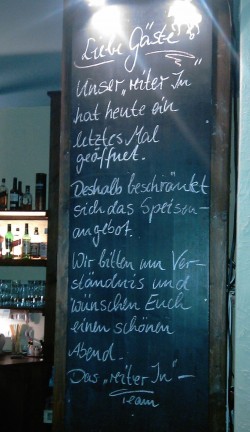 Liebe Gäste
Unser „reiter In"
hat heute ein
letztes Mal
geöffnet.
Deshalb beschränkt
sich das Speisen-
angebot.
Wir bitten um Ver-
ständnis und
wünschen Euch
einen schönen
Abend.
Das „reiter In"-
Team